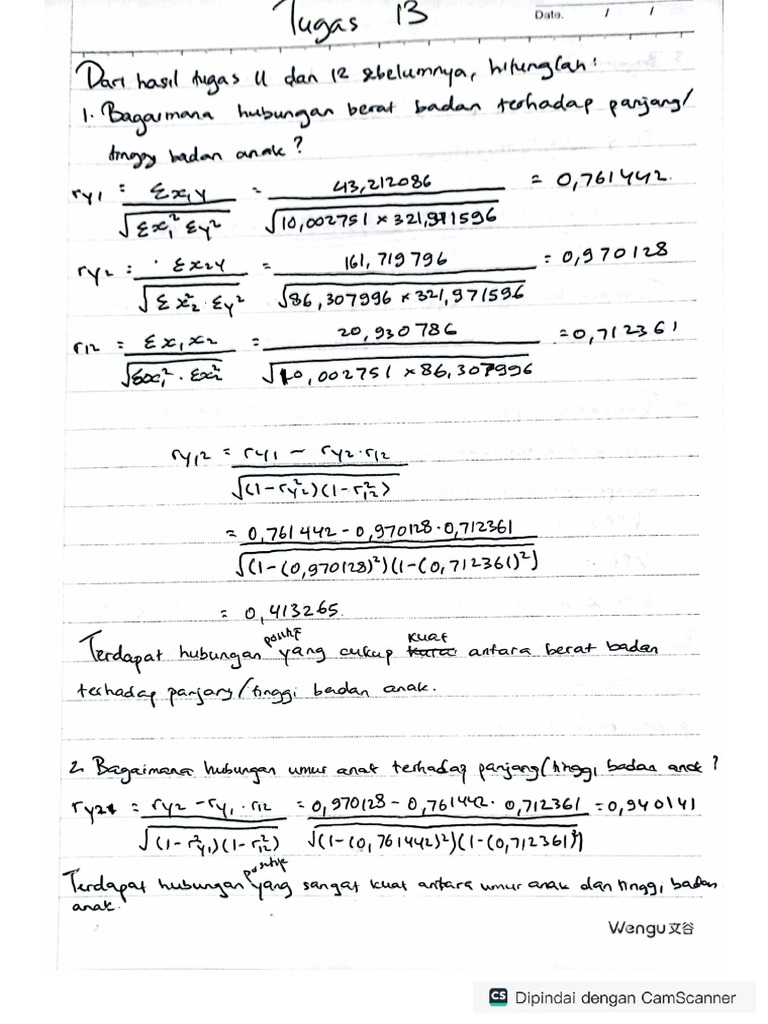 Tugas 13
Date. / /
Dari hasil tugas 11 dan 12 sebelumnya, hitunglah:
1. Bagaimana hubungan berat badan terhadap panjang/
tinggi badan anak?
ry1 = Σx1y / √(Σx1² Σy²) = 43,212086 / √(10,002751 × 321,971596) = 0,761442.
ry2 = Σx2y / √(Σx2² · Σy²) = 161,719796 / √(86,307996 × 321,971596) = 0,970128
r12 = Σx1x2 / √(Σx1² · Σx2²) = 20,930786 / √(10,002751 × 86,307996) = 0,712361
ry12 = ry1 - ry2 · r12 / √((1-ry2²)(1-r12²))
= 0,761442 - 0,970128 · 0,712361 / √((1-(0,970128)²)(1-(0,712361)²))
= 0,413265.
Terdapat hubungan positif yang cukup kuat antara berat badan
terhadap panjang/tinggi badan anak.
2. Bagaimana hubungan umur anak terhadap panjang/tinggi badan anak?
ry21 = ry2 - ry1 · r12 / √((1-r²y1)(1-r12²)) = 0,970128 - 0,761442 · 0,712361 / √((1-(0,761442)²)(1-(0,712361)²)) = 0,940141
Terdapat hubungan positif yang sangat kuat antara umur anak dan tinggi badan
anak.
Wengu文谷
CS Dipindai dengan CamScanner